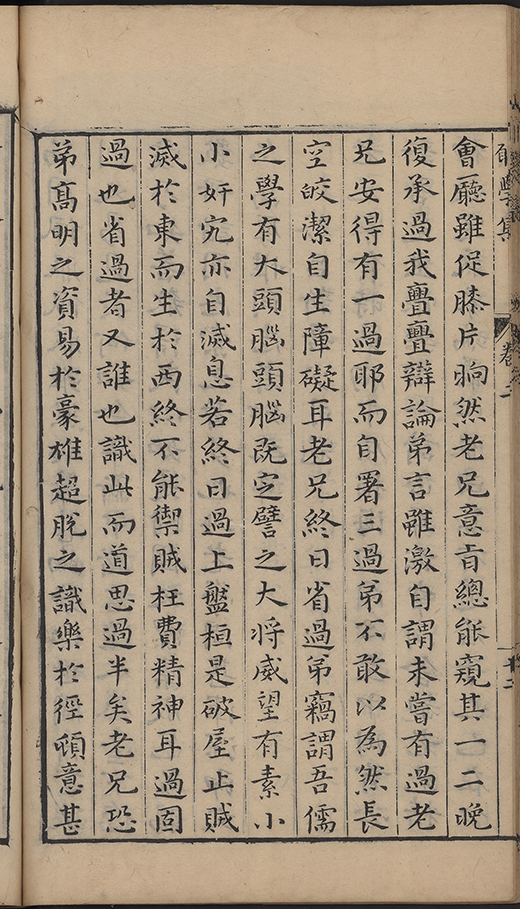 會廳雖促膝片晌然老兄意旨總能窺其一二晚
復承過我亹亹辯論弟言雖激自謂未嘗有過老
兄安得有一過耶而自署三過弟不敢以為然長
空皎潔自生障礙耳老兄終日省過弟竊謂吾儒
之學有大頭腦頭腦既定譬之大將威望有素小
小奸宄亦自滅息若終日過上盤桓是破屋止賊
滅於東而生於西終不能禦賊枉費精神耳過固
過也省過者又誰也識此而道思過半矣老兄恐
弟髙明之資易於豪雄超脫之識樂於徑頓意甚